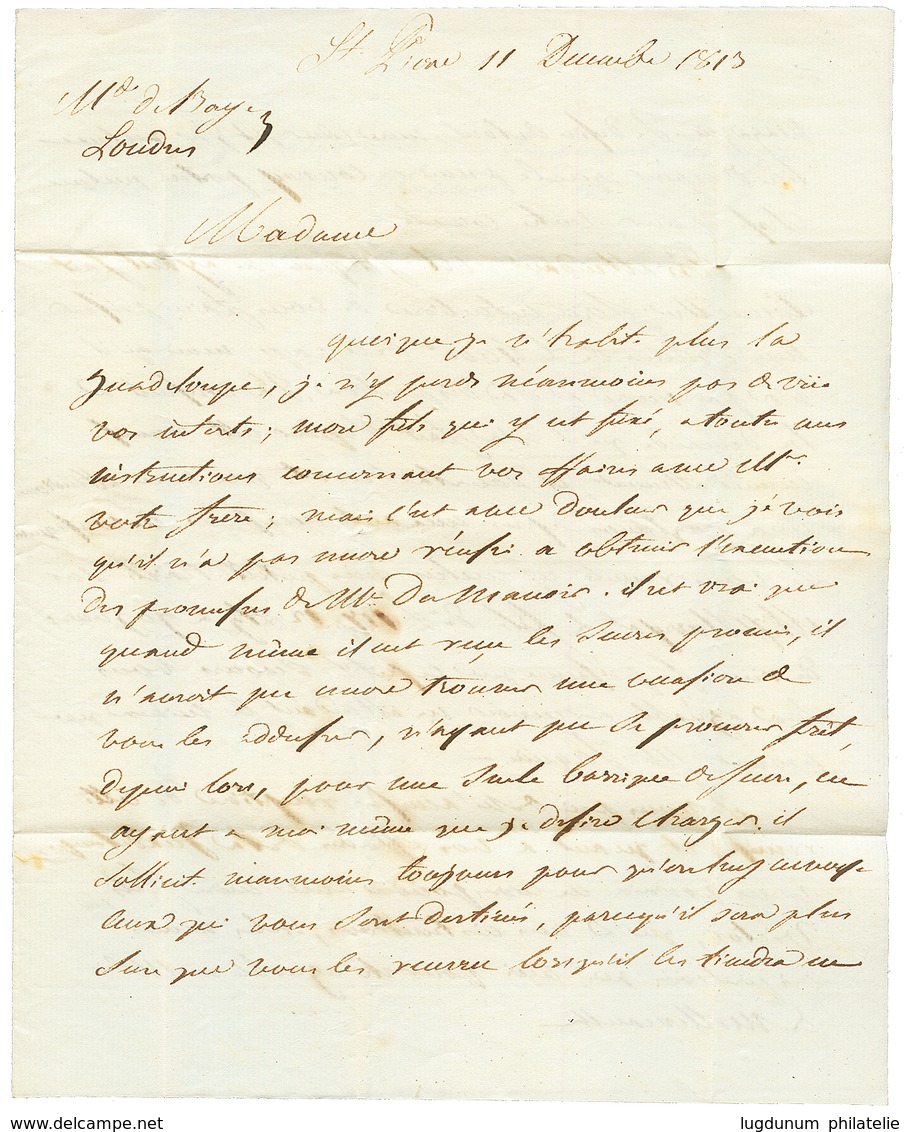 St Pierre 11 Decembre 1813
Md. de Baye
Londres
Madame
quoique je n'habite plus la
Guadeloupe, je n'y perds néanmoins pas de vüe
vos interets; mon fils qui y est fixé, a toutes mes
instructions concernant vos affaires avec Mr.
votre frere; mais c'est avec douleur que je vois
qu'il n'a pas encore réussi a obtenir l'execution
des promesses de Mr. Du Manoir. il est vrai que
quand même il eut reçu les sucres promis, il
n'auroit pu encore trouver une occasion de
vous les addresser, n'ayant pu se procurer fret,
depuis lors, pour une seule barrique de sucre, en
ayant a moi même que je desire charger. il
sollicite neanmoins toujours pour qu'on luy envoye
ceux qui vous sont destinés, parcequ'il sera plus
sure que vous les recevrez lorsqu'il les tiendra en
www.delcampe.net
lugdunum philatelie